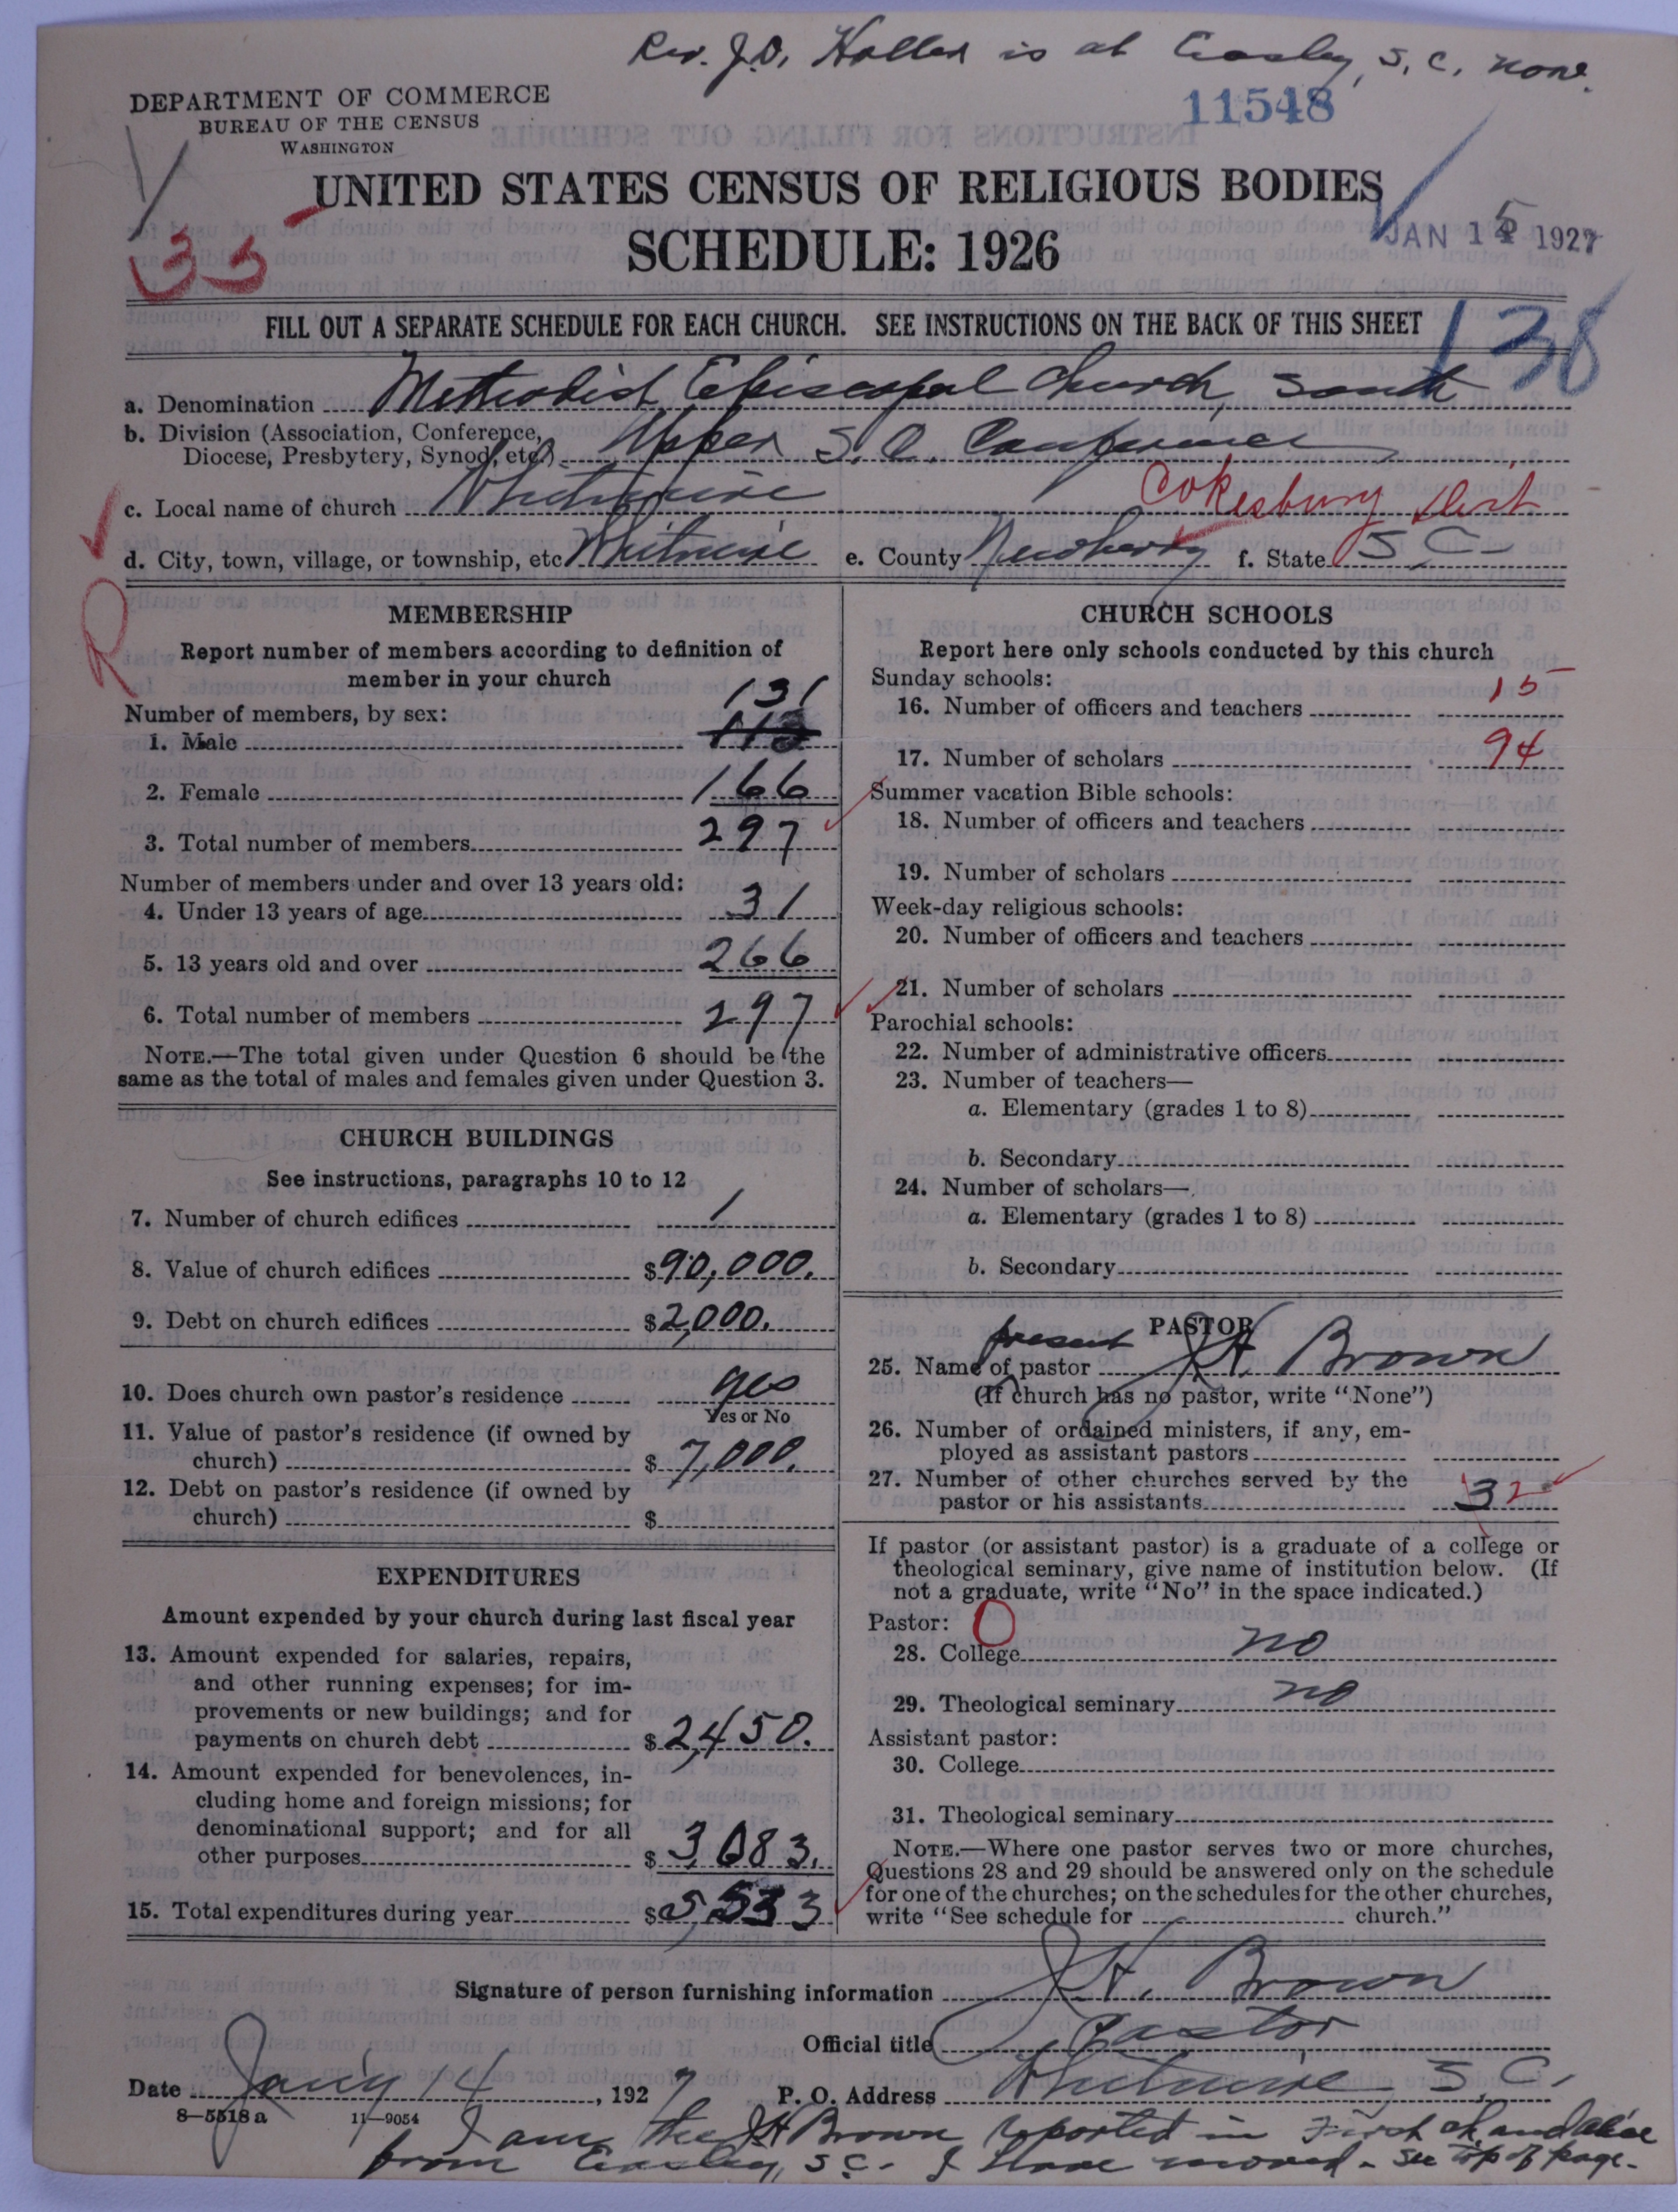 Rev. J.D. Holler is at Easley, S.C. now.
DEPARTMENT OF COMMERCE
BUREAU OF THE CENSUS
WASHINGTON
11548
UNITED STATES CENSUS OF RELIGIOUS BODIES
SCHEDULE: 1926
35
JAN 15 1927
FILL OUT A SEPARATE SCHEDULE FOR EACH CHURCH. SEE INSTRUCTIONS ON THE BACK OF THIS SHEET
138
a. Denomination Methodist Episcopal Church, South
b. Division (Association, Conference,
Diocese, Presbytery, Synod, etc.) Upper S.C. Conference
c. Local name of church Whitmire Cokesbury Dist
d. City, town, village, or township, etc. Whitmire e. County Newberry f. State S C
R
MEMBERSHIP
Report number of members according to definition of
member in your church
Number of members, by sex:
131
1. Male
2. Female 166
3. Total number of members 297
Number of members under and over 13 years old:
4. Under 13 years of age 31
5. 13 years old and over 266
6. Total number of members 297
NOTE.—The total given under Question 6 should be the
same as the total of males and females given under Question 3.
CHURCH BUILDINGS
See instructions, paragraphs 10 to 12
7. Number of church edifices 1
8. Value of church edifices $90,000.
9. Debt on church edifices $2,000.
10. Does church own pastor's residence yes
Yes or No
11. Value of pastor's residence (if owned by
church) $7,000.
12. Debt on pastor's residence (if owned by
church) $
EXPENDITURES
Amount expended by your church during last fiscal year
13. Amount expended for salaries, repairs,
and other running expenses; for im-
provements or new buildings; and for
payments on church debt $2,450.
14. Amount expended for benevolences, in-
cluding home and foreign missions; for
denominational support; and for all
other purposes $3,083.
15. Total expenditures during year $5,533
CHURCH SCHOOLS
Report here only schools conducted by this church
Sunday schools:
16. Number of officers and teachers 15
17. Number of scholars 94
Summer vacation Bible schools:
18. Number of officers and teachers
19. Number of scholars
Week-day religious schools:
20. Number of officers and teachers
21. Number of scholars
Parochial schools:
22. Number of administrative officers
23. Number of teachers—
a. Elementary (grades 1 to 8)
b. Secondary
24. Number of scholars—
a. Elementary (grades 1 to 8)
b. Secondary
PASTOR
present
25. Name of pastor J.H. Brown
(If church has no pastor, write "None")
26. Number of ordained ministers, if any, em-
ployed as assistant pastors
27. Number of other churches served by the
pastor or his assistants 3 2
If pastor (or assistant pastor) is a graduate of a college or
theological seminary, give name of institution below. (If
not a graduate, write "No" in the space indicated.)
Pastor: 0
28. College no
29. Theological seminary no
Assistant pastor:
30. College
31. Theological seminary
NOTE.—Where one pastor serves two or more churches,
Questions 28 and 29 should be answered only on the schedule
for one of the churches; on the schedules for the other churches,
write "See schedule for church."
Signature of person furnishing information J.H. Brown
Official title Pastor
Date Jan'y 14, 1927 P. O. Address Whitmire S.C.
8—5518a 11—9054
I am the JH Brown reported in First
from Easley, S.C. I have moved - see top of page.